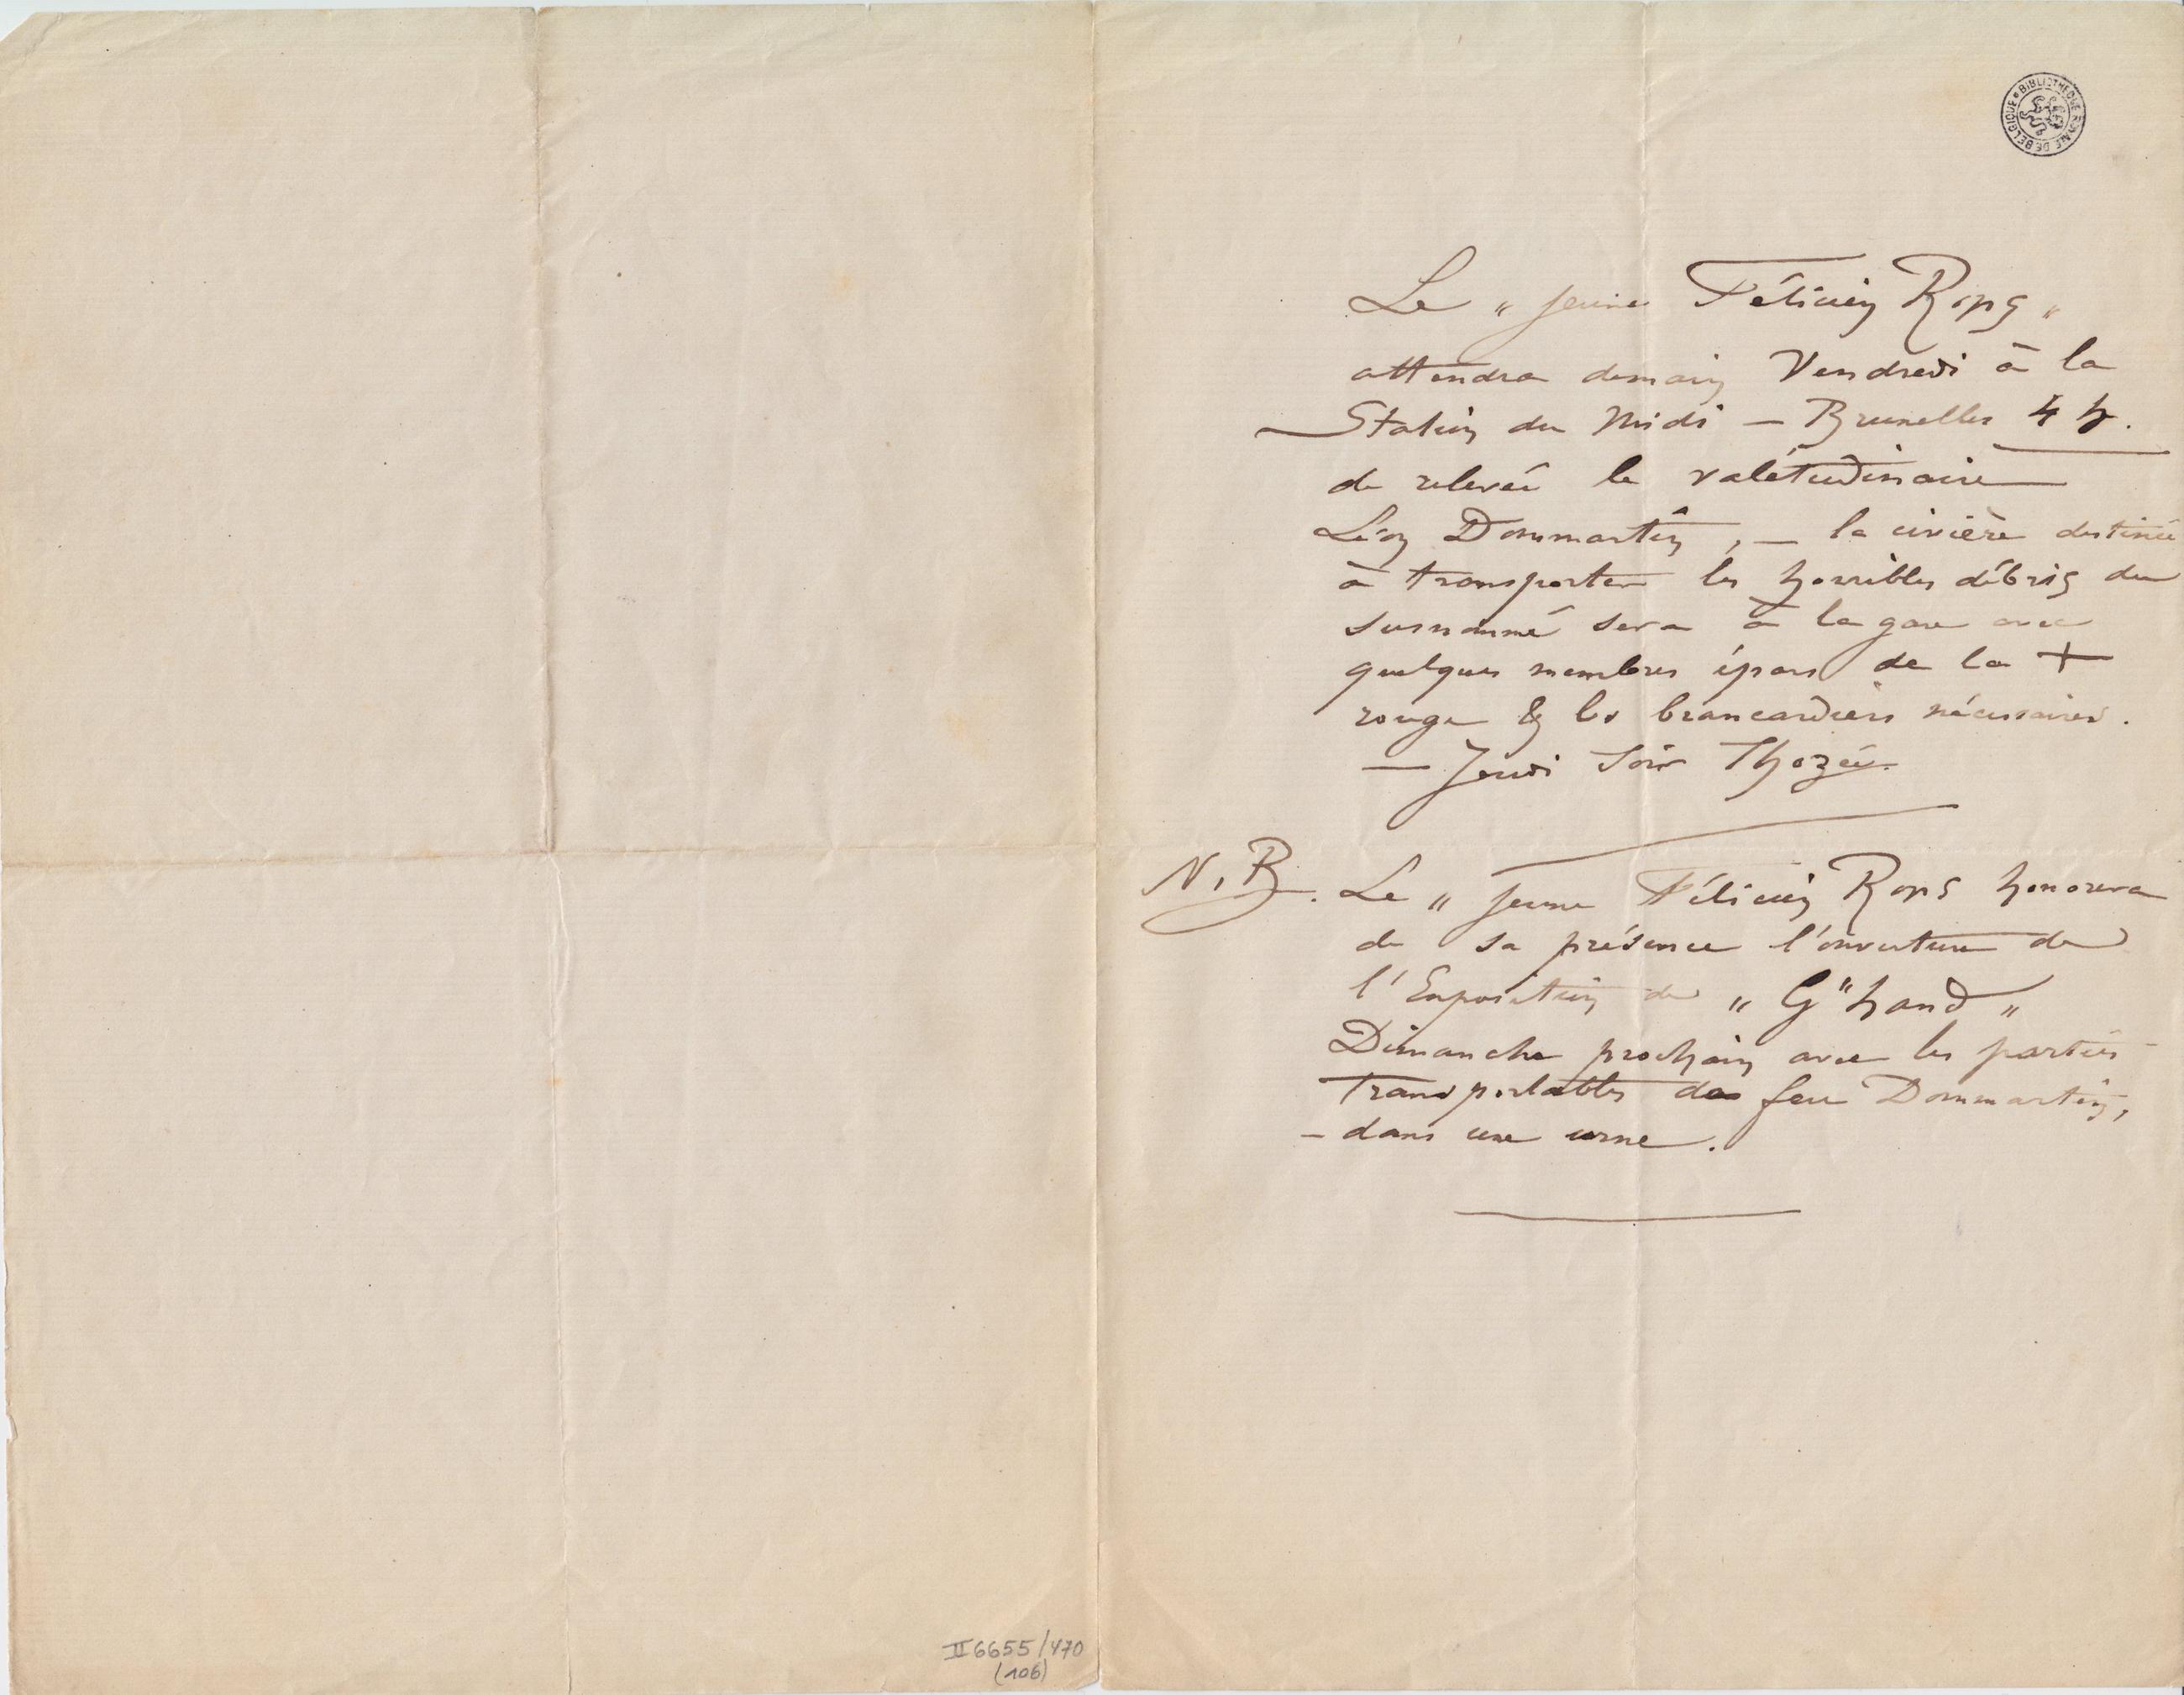 BIBLIOTHÈQUE ROYALE DE BELGIQUE
Le „ jeune Félicien Rops „
attendra demain Vendredi à la
Station du Midi – Bruxelles 4 h.
de relevée le valétudinaire
Léon Dommartin, – la civière destinée
à transporter les horribles débris du
susnommé sera à la gare avec
quelques membres épars de la +
rouge & les brancardiers nécessaires.
— Jeudi Soir Thozée.
N. B. Le „ jeune Félicien Rops honorera
de sa présence l'ouverture de
l'Exposition de „ G"hand „
Dimanche prochain avec les parties
transportables de feu Dommartin,
– dans une urne.
II 6655/470
(106)